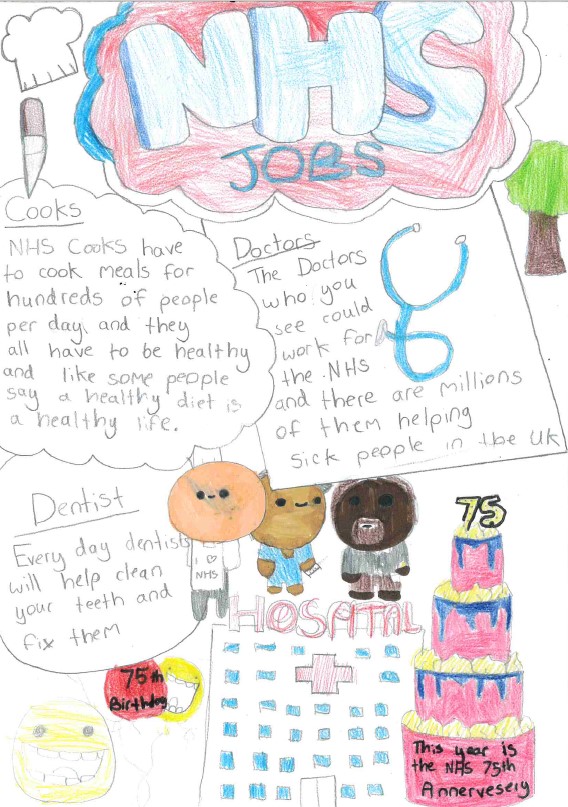 NHS
JOBS
Cooks
NHS Cooks have
to cook meals for
hundreds of people
per day, and they
all have to be healthy
and like some people
say a healthy diet is
a healthy life.
Doctors
The Doctors
who you
see could
work for
the NHS
and there are millions
of them helping
sick people in the UK
Dentist
Every day dentists
will help clean
your teeth and
fix them
I ♡
NHS
HOSPITAL
75th
Birthday
75
This year is
the NHS 75th
Annervesery